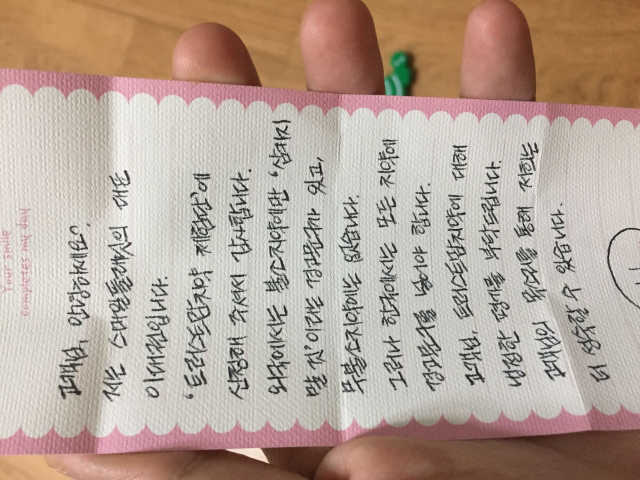 Your smile
completes my day
고객님, 안녕하세요?
저는 스마일플래닛의 대표
체험단'에
신청해 주셔서 감사합니다.
외국에서는 불소치약에만 '삼키지
말 것'이라는 경고문구가 있고,
무불소치약에는 없습니다.
그러나 한국에서는 모든 치약에
경고문구를 넣어야 합니다.
고객님, 대해
냉정한 평가를 부탁드립니다.
고객님의 목소리를 통해 저희는
더 성숙할 수 있습니다.